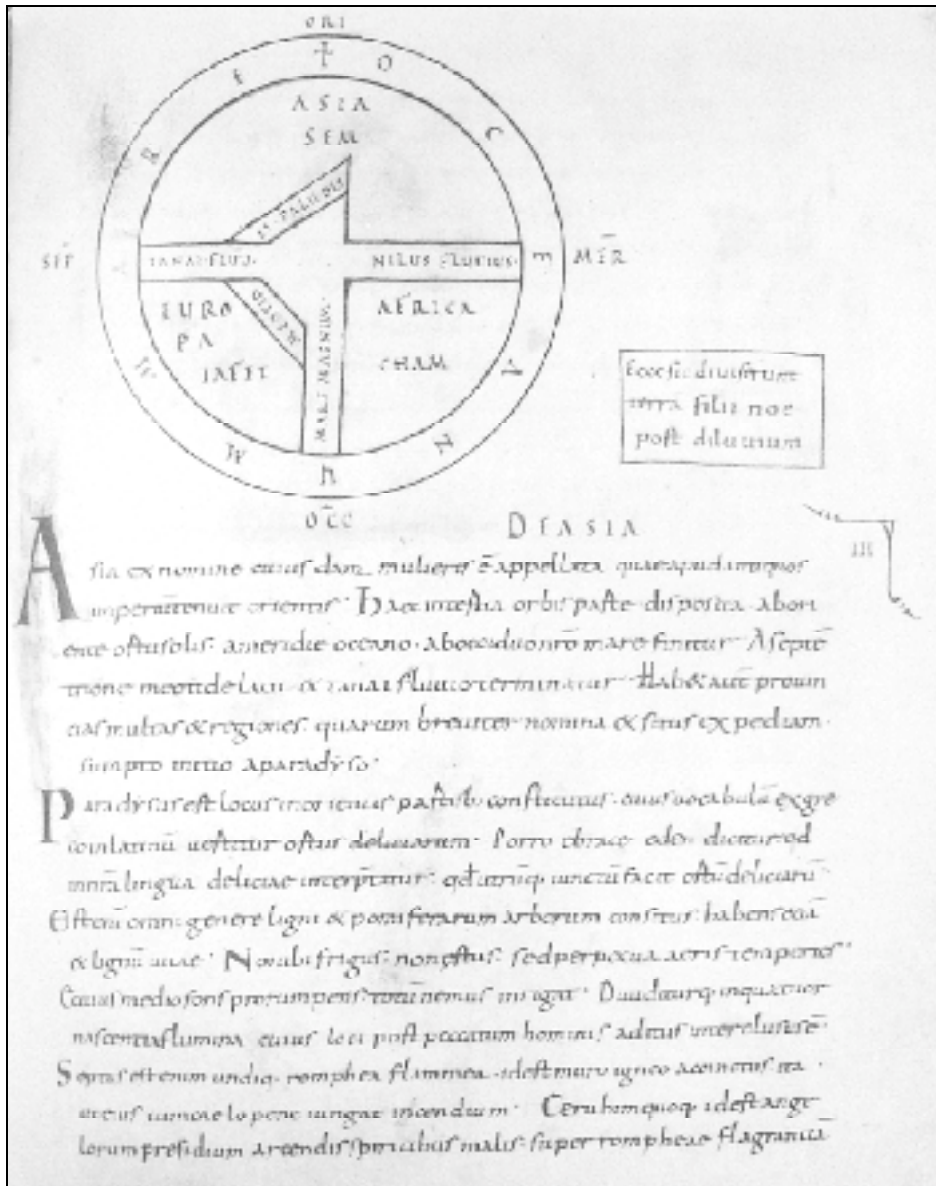 ORI
ASIA
SEM
SEP
TANAI FLUU.
NILUS FLUUIUS.
MER
EURO
PA
IAFET
MARE MAGNUM.
AFRICA
CHAM
Ecce sic diuiserunt
terrā filii noe
post diluuium
OCC
DE ASIA
III
Asia ex nomine cuius dam mulieris ē appellata quae apud antiquos
imperiū tenuit orientis Haec in tertia orbis parte disposita ab ori
ente ortu solis a meridie oceano ab occiduo nrō mare finitur A septē
trione meotide lacu & tanai fluuio terminatur Hab& aut prouin
cias multas & regiones quarum breuiter nomina & situs expediam
sumpto initio a paradyso
Paradysus est locus in orientis partib; constitutus cuius uocabulū ex gre
co in latinū uertitur ortus deliciarum Porro ebraice eden dicitur qd
in nrā lingua deliciae interp̄tatur qd utrūq; iunctū facit ortū deliciarū
Est enī omni genere ligni & pomiferarum arborum consitus habens &iā
& lignū uitae Non ibi frigus non estus sed perpetua aeris temperies
e cuius medio fons prorumpens totū nemus inrigat Diuiditurq; in quatuor
nascentia flumina cuius loci post peccatum hominis aditus interclusus ē
Septus est enim undiq; romphea flammea id est muro igneo accinctus ita
ut eius cum caelo pene iungat incendium Cerubin quoq; id est ange
lorum presidium arcendis spiritibus malis super rompheae flagrantiā